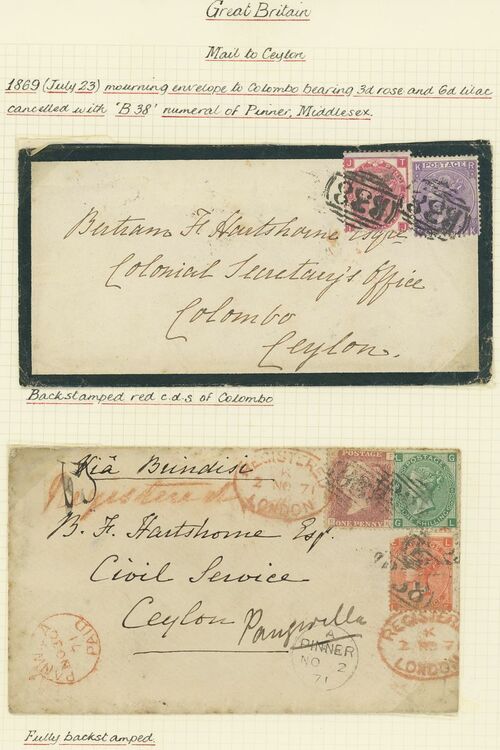 Great Britain
Mail to Ceylon
1869 (July 23) mourning envelope to Colombo bearing 3d rose and 6d lilac
cancelled with 'B 38' numeral of Pinner, Middlesex.
J T
K POSTAGE R
B38
B38
Bertram F Hartshorne Esqre
Colonial Secretary's Office
Colombo
Ceylon.
Backstamped red c.d.s of Colombo
Viâ Brindisi
Registered
REGISTERED
K
2 NO 71
LONDON
POSTAGE
ONE PENNY
L POSTAGE G
G L
B. F. Hartshorne Esq.
Civil Service
Ceylon
REGISTERED
K
2 NO 7
LONDON
PAID
A
PINNER
NO 2
71
Fully backstamped.